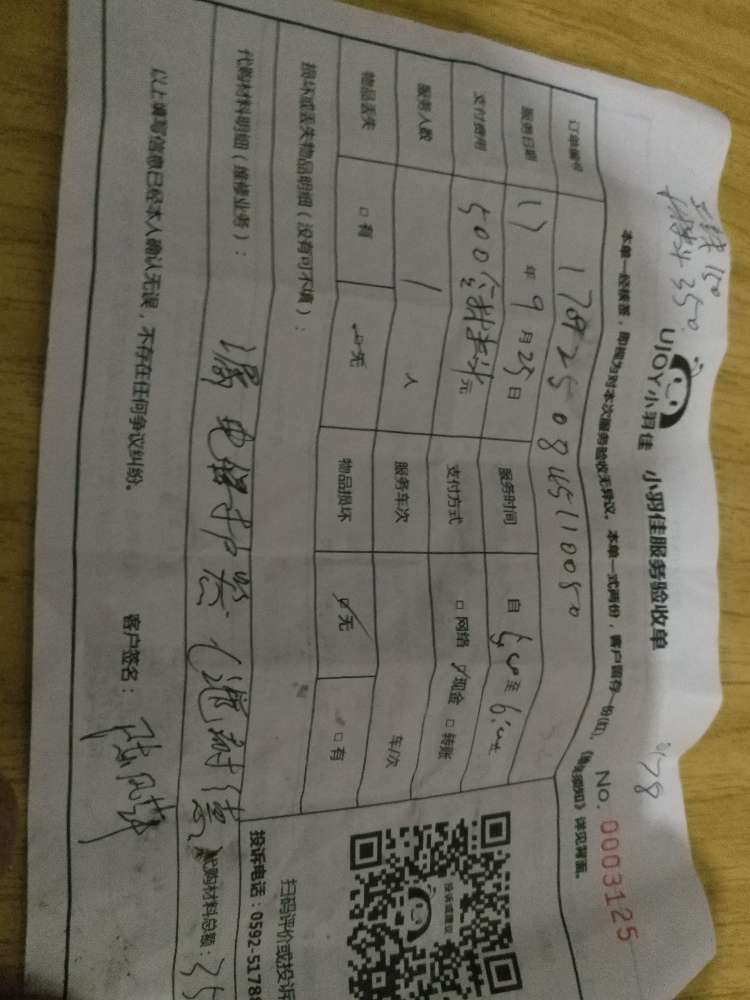 工钱150
材料350
UJOY小羽佳 小羽佳服务验收单
No. 0003125
本单一经核签，即视为对本次服务验收无异议。本单一式两份，客户留存一份(红)，《 》详见背面。
订单编号 17092508451100 0
服务日期 17年9月25日 服务时间 自 至
支付费用 500含材料元 支付方式 □网络 ☑现金 □转账
服务人数 1 人 服务车次 车/次
物品丢失 □有 ☑无 物品损坏 ☑无 □有
损坏或丢失物品明细（没有可不填）：
代购材料明细（维修业务）：
漏电保护器（ ） 代购材料总额：35
以上填写信息已经本人确认无误，不存在任何争议纠纷。
客户签名：
扫码评价或投诉
投诉电话：0592-5178